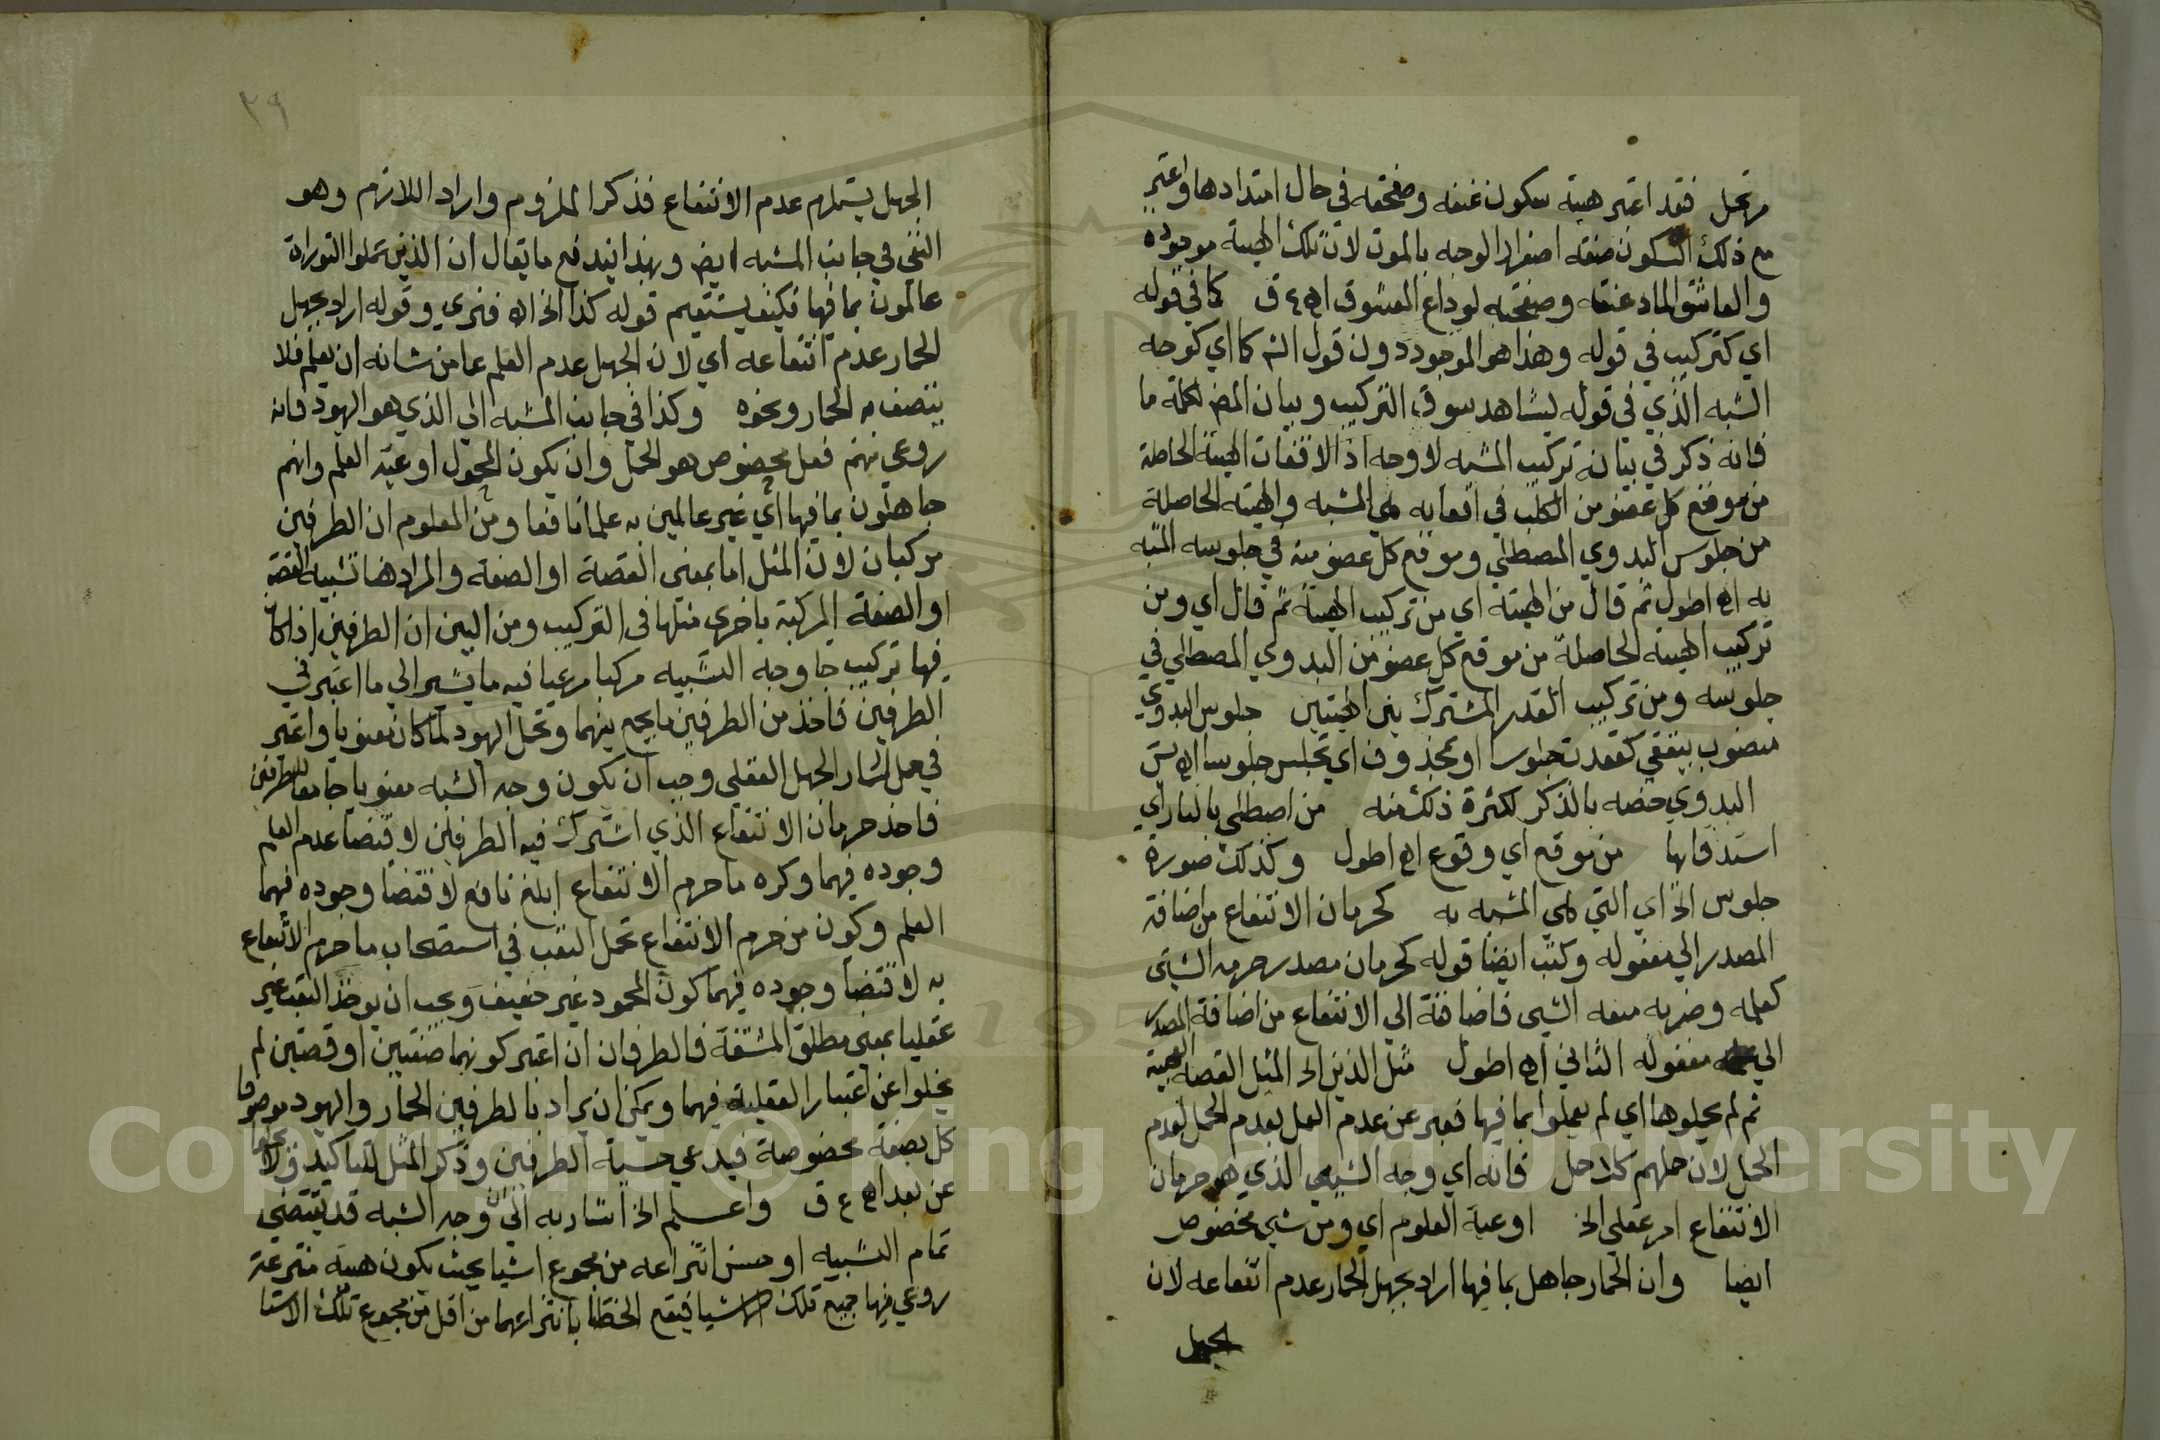 مرتحل فقد اعتبر هيئة سكون عنقه وصفحته في حال امتدادها واعتبر
مع ذلك السكون صفته اصفرار الوجه بالموت لان تلك الهيئة موجودة
والعاشق الماد عنقه وصفحته لوداع المعشوق اه ع ق كما في قوله
اي كتركيب في قوله وهذا هو الموجود دون قول الش كما اي كوجه
الشبه الذي في قوله ليشاهد سوق التركيب وبيان المص لكلمة ما
فانه ذكر في بيانه تركيب المشبه لا وجه اذ الاقعاء الهيئة الحاصلة
من موقع كل عضو من الكلب في اقعائه هي المشبه والهيئة الحاصلة
من جلوس البدوي المصطلي وموقع كل عضو منه في جلوسه المشبه
به اه اطول ثم قال من الهيئة اي من تركيب الهيئة ثم قال اي ومن
تركيب الهيئة الحاصلة من موقع كل عضو من البدوي المصطلي في
جلوسه ومن تركيب القدر المشترك بين الهيئتين جلوس البدوي
منصوب بيقعي كقعدت جلوسا او بمحذوف اي تجلس جلوسا اه يس
البدوي خصه بالذكر لكثرة ذلك منه من اصطلى بالنار اي
استدفا بها من موقع اي وقوع اه اطول وكذلك صورة
جلوس الخ اي التي هي المشبه به كحرمان الانتفاع من اضافة
المصدر الي مفعوله وكتب ايضا قوله كحرمان مصدر حرمه الشيئ
كعلمه وضربه منعه الشيى فاضافته الي الانتفاع من اضافة المصدر
الي مفعوله الثاني اه اطول مثل الذين الخ المثل القصة العجيبة
ثم لم يحملوها اي لم يعملوا بما فيها فعبر عن عدم العمل بعدم الحمل لعدم
الحمل لان حملهم كلا حمل فانه اي وجه الشبه الذي هو حرمان
الانتفاع امر عقلي الخ اوعية العلوم اي ومن شيئ مخصوص
ايضا وان الحمار جاهل بما فيها اراد بجهل الحمار عدم انتفاعه لان
الجهل
٣٩
الجهل يستلزم عدم الانتفاع فذكر الملزوم واراد اللازم وهو
النفي في جانب المشبه ايض وبهذا يندفع ما يقال ان الذين حملوا التوراة
عالمون بما فيها فكيف يستقيم قوله كذا الخ اه فنري وقوله اراد بجهل
الحمار عدم انتفاعه اي لان الجهل عدم العلم عما من شانه ان يعلم فلا
يتصف به الحمار ونحوه وكذا في جانب المشبه الي الذي هو اليهود فانه
روعي منهم فعل مخصوص هو الحمل وان يكون المحمول اوعية العلم وانهم
جاهلون بما فيها اي غير عالمين به علما نافعا ومن المعلوم ان الطرفين
مركبان لان المثل اما بمعني القصة او الصفة والمراد هنا تشبيه القصة
او الصفة المركبة باخري مثلها في التركيب ومن البين ان الطرفين اذا كان
فيها تركيب جا وجه التشبيه مركبا مرعيا فيه ما يشير الي ما اعتبر في
الطرفين فاخذ من الطرفين ما يجمع بينهما وتحمل اليهود لما كان معنويا واعتبر
في حمل الحمار الجهل العقلي وجب ان يكون وجه الشبه معنويا جامعا للطرفين
فاخذ حرمان الانتفاع الذي اشترك فيه الطرفان لاقتضا عدم العلم
وجوده فيهما وكره ما حرم الانتفاع ابلغ نافع لاقتضا وجوده فيهما
العلم وكون من حرم الانتفاع تحمل التعب في استصحاب ما حرم الانتفاع
به لاقتضا وجوده فيهما كون المحمود غير خفيف ويجب ان يوخذ التعب غير
عقليا بمعني مطلق المشقة فالطرفان ان اعتبر كونهما صفتين او قصتين لم
يخلوا عن اعتبار العقلية فيهما ويمكن ان يراد بالطرفين الحمار واليهود موصوفا
كل بصفة مخصوصة فيدعي حسية الطرفين وذكر المثل للتاكيد
عن بعد اه ع ق واعلم الخ اشار به الي ان وجه الشبه قد يقتضي
تمام التشبيه او حسن انتزاعه من مجموع اشيا بحيث يكون هيئة منتزعة
روعي فيها جميع تلك الاشيا فيقع الخطا بانتزاعها من اقل من مجموع تلك الاشيا